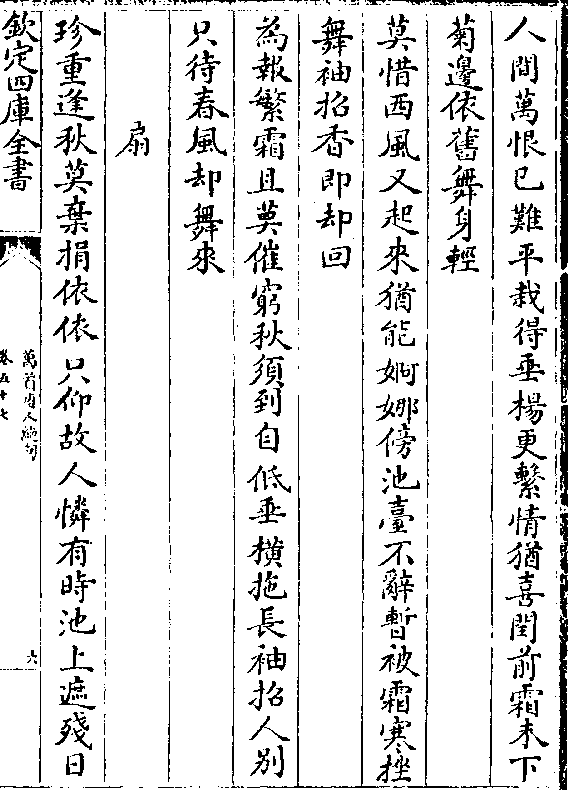 人間萬恨已難平栽得垂楊更繫情猶喜閏前霜未下
菊邊依舊舞身輕
莫惜西風又起來猶能婀娜傍池臺不辭暫被霜寒挫
舞袖招香即却回
為報繁霜且莫催窮秋須到自低垂橫拖長袖招人別
只待春風却舞來
扇
珍重逢秋莫棄捐依依只仰故人憐有時池上遮殘日
欽定四庫全書
萬首唐人絶句
卷五十七
六